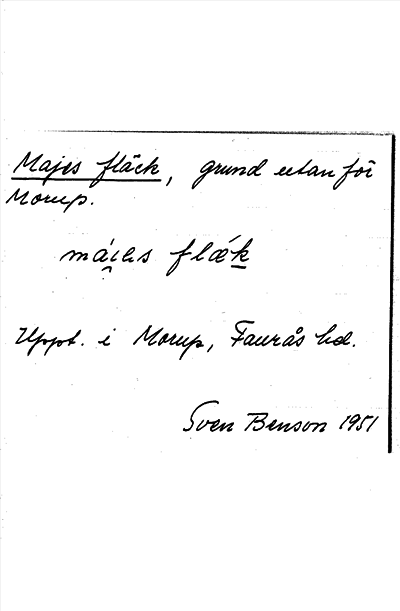 Majes fläck, grund utanför
Morup.
mái̯əs flǽk
Uppt. i Morup, Faurås hd.
Sven Benson 1951